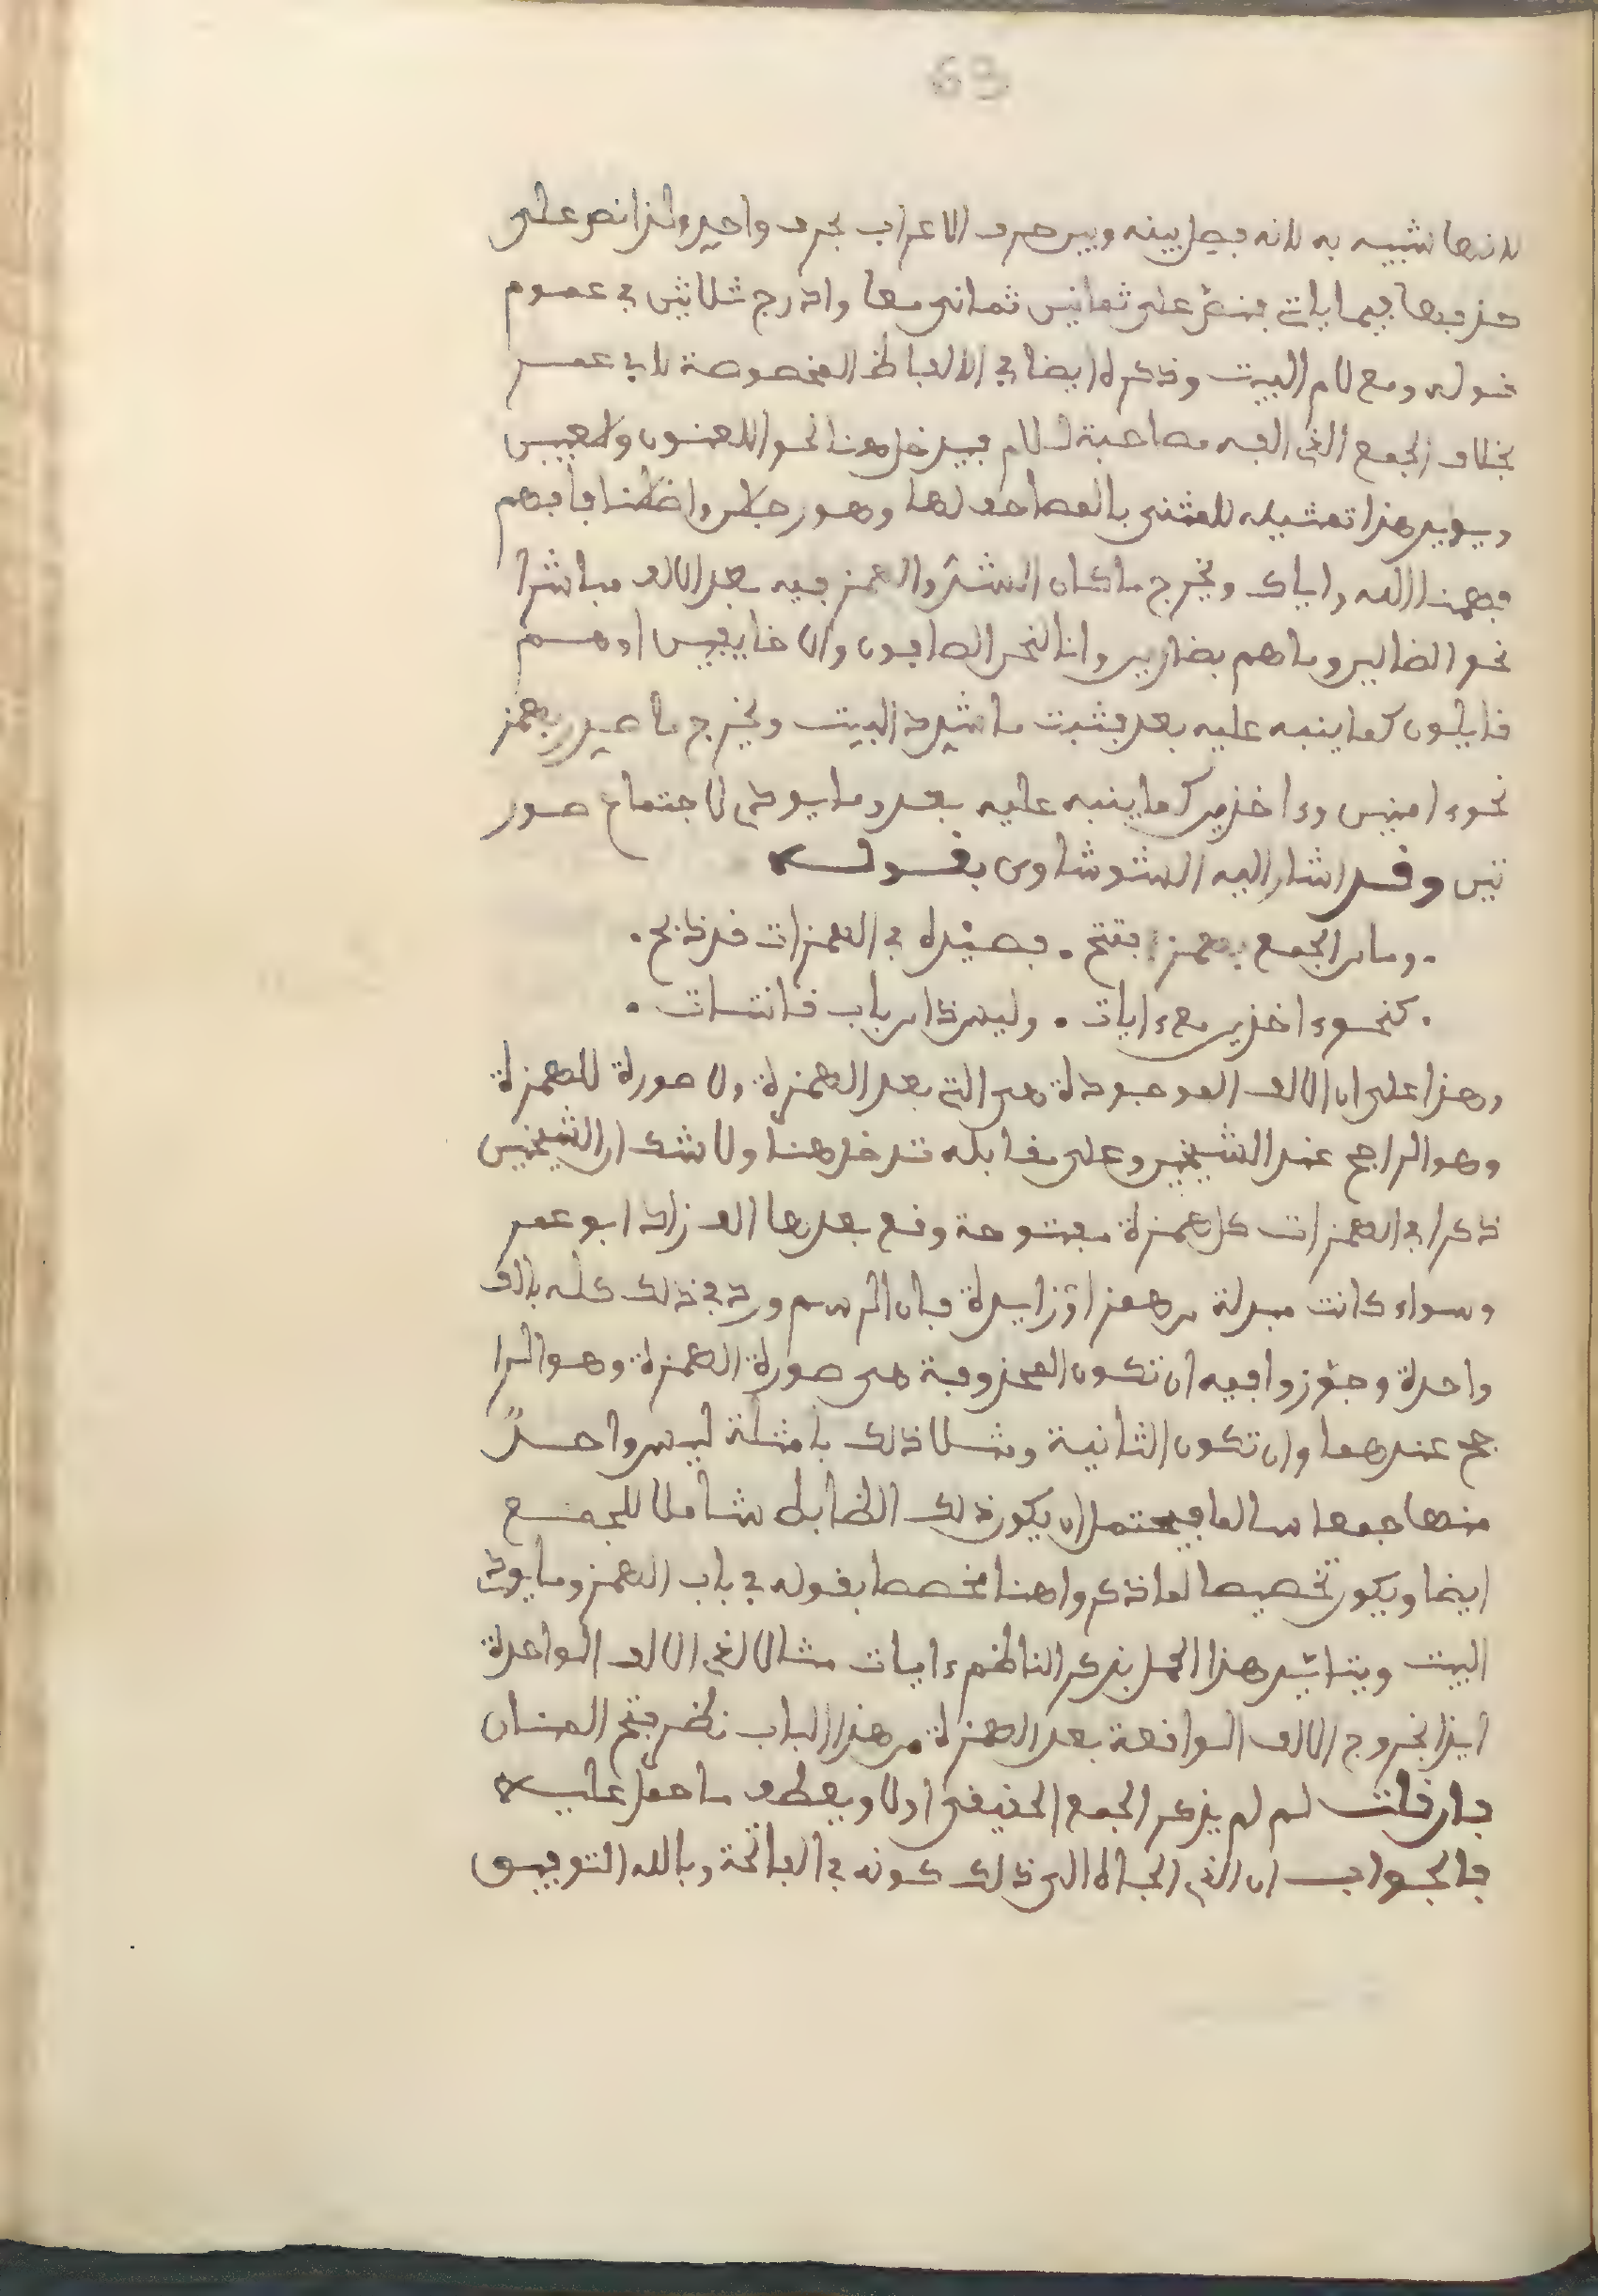 63
لانها شبيه به لانه فصل بينه وبين حرف الاعراب بحرف واحد ولذا نص على
حذفها فيما ياتي بنص على ثمانين ثماني معا واندرج ثلاثين في عموم
قوله ومع لام البيت وذكره ايضا في الالفاظ المخصوصة لابي عمر
بخلاف الجمع الذي الفه مصاحبة للام فيدخل هنا نحو اللعنون ولعبين
ويويد هذا تمثيله للمثنى بالمصاحف لها وهو رجلن واضلنا فافهم
فهمنا الله واياك ويخرج ما كان الشد والهمز فيه بعد الالف مباشرا
نحو الضالين وما هم بضارين وانا لنحن الصافون وان خايفين او هم
قايلون كما ينبه عليه بعد فثبت ما شدد البيت ويخرج ما صدر بهمز
نحو ءامنين وءاخذين كما ينبه عليه بعد وما يودي لاجتماع صور
تين وقد اشار اليه الشوشاوي بقوله
. وما من الجمع بهمز افتتح . فصيده في الهمزات قد ذبح .
. كنحو ءاخذين مع ءايات . وليس ذا من باب قانتات .
وهذا على ان الالف الموجودة هي التي بعد الهمزة ولا صورة للهمزة
وهو الراجح عند الشيخين وعلى مقابله تدخل هنا ولا شك ان الشيخين
ذكرا في الهمزات كل همزة مفتوحة وقع بعدها الف زاد ابو عمر
وسواء كانت مبدلة من همز او زايدة فان الرسم ورد في ذلك كله بالف
واحدة وجوزوا فيه ان تكون المحذوفة هي صورة الهمزة وهو الرا
جح عندهما وان تكون الثانية ومثلا ذلك بامثلة ليس واحد
منها جمعا سالما فيحتمل ان يكون ذلك الضابط شاملا للجمع
ايضا ويكون تخصيصا لما ذكروا هنا مخصصا بقوله في باب الهمز وما يودي
البيت ويتايد هذا الحمل بذكر الناظم ءايات مثالا لذي الالف الواحدة
ايذا بخروج الالف الواقعة بعد الهمزة من هذا الباب نظر فتح المنان
فان قلت لم لم يذكر الجمع الحقيقي اولا ويعطف ما حمل عليه
فالجواب ان الذي الجاه الى ذلك كونه في الفاتحة وبالله التوفيق